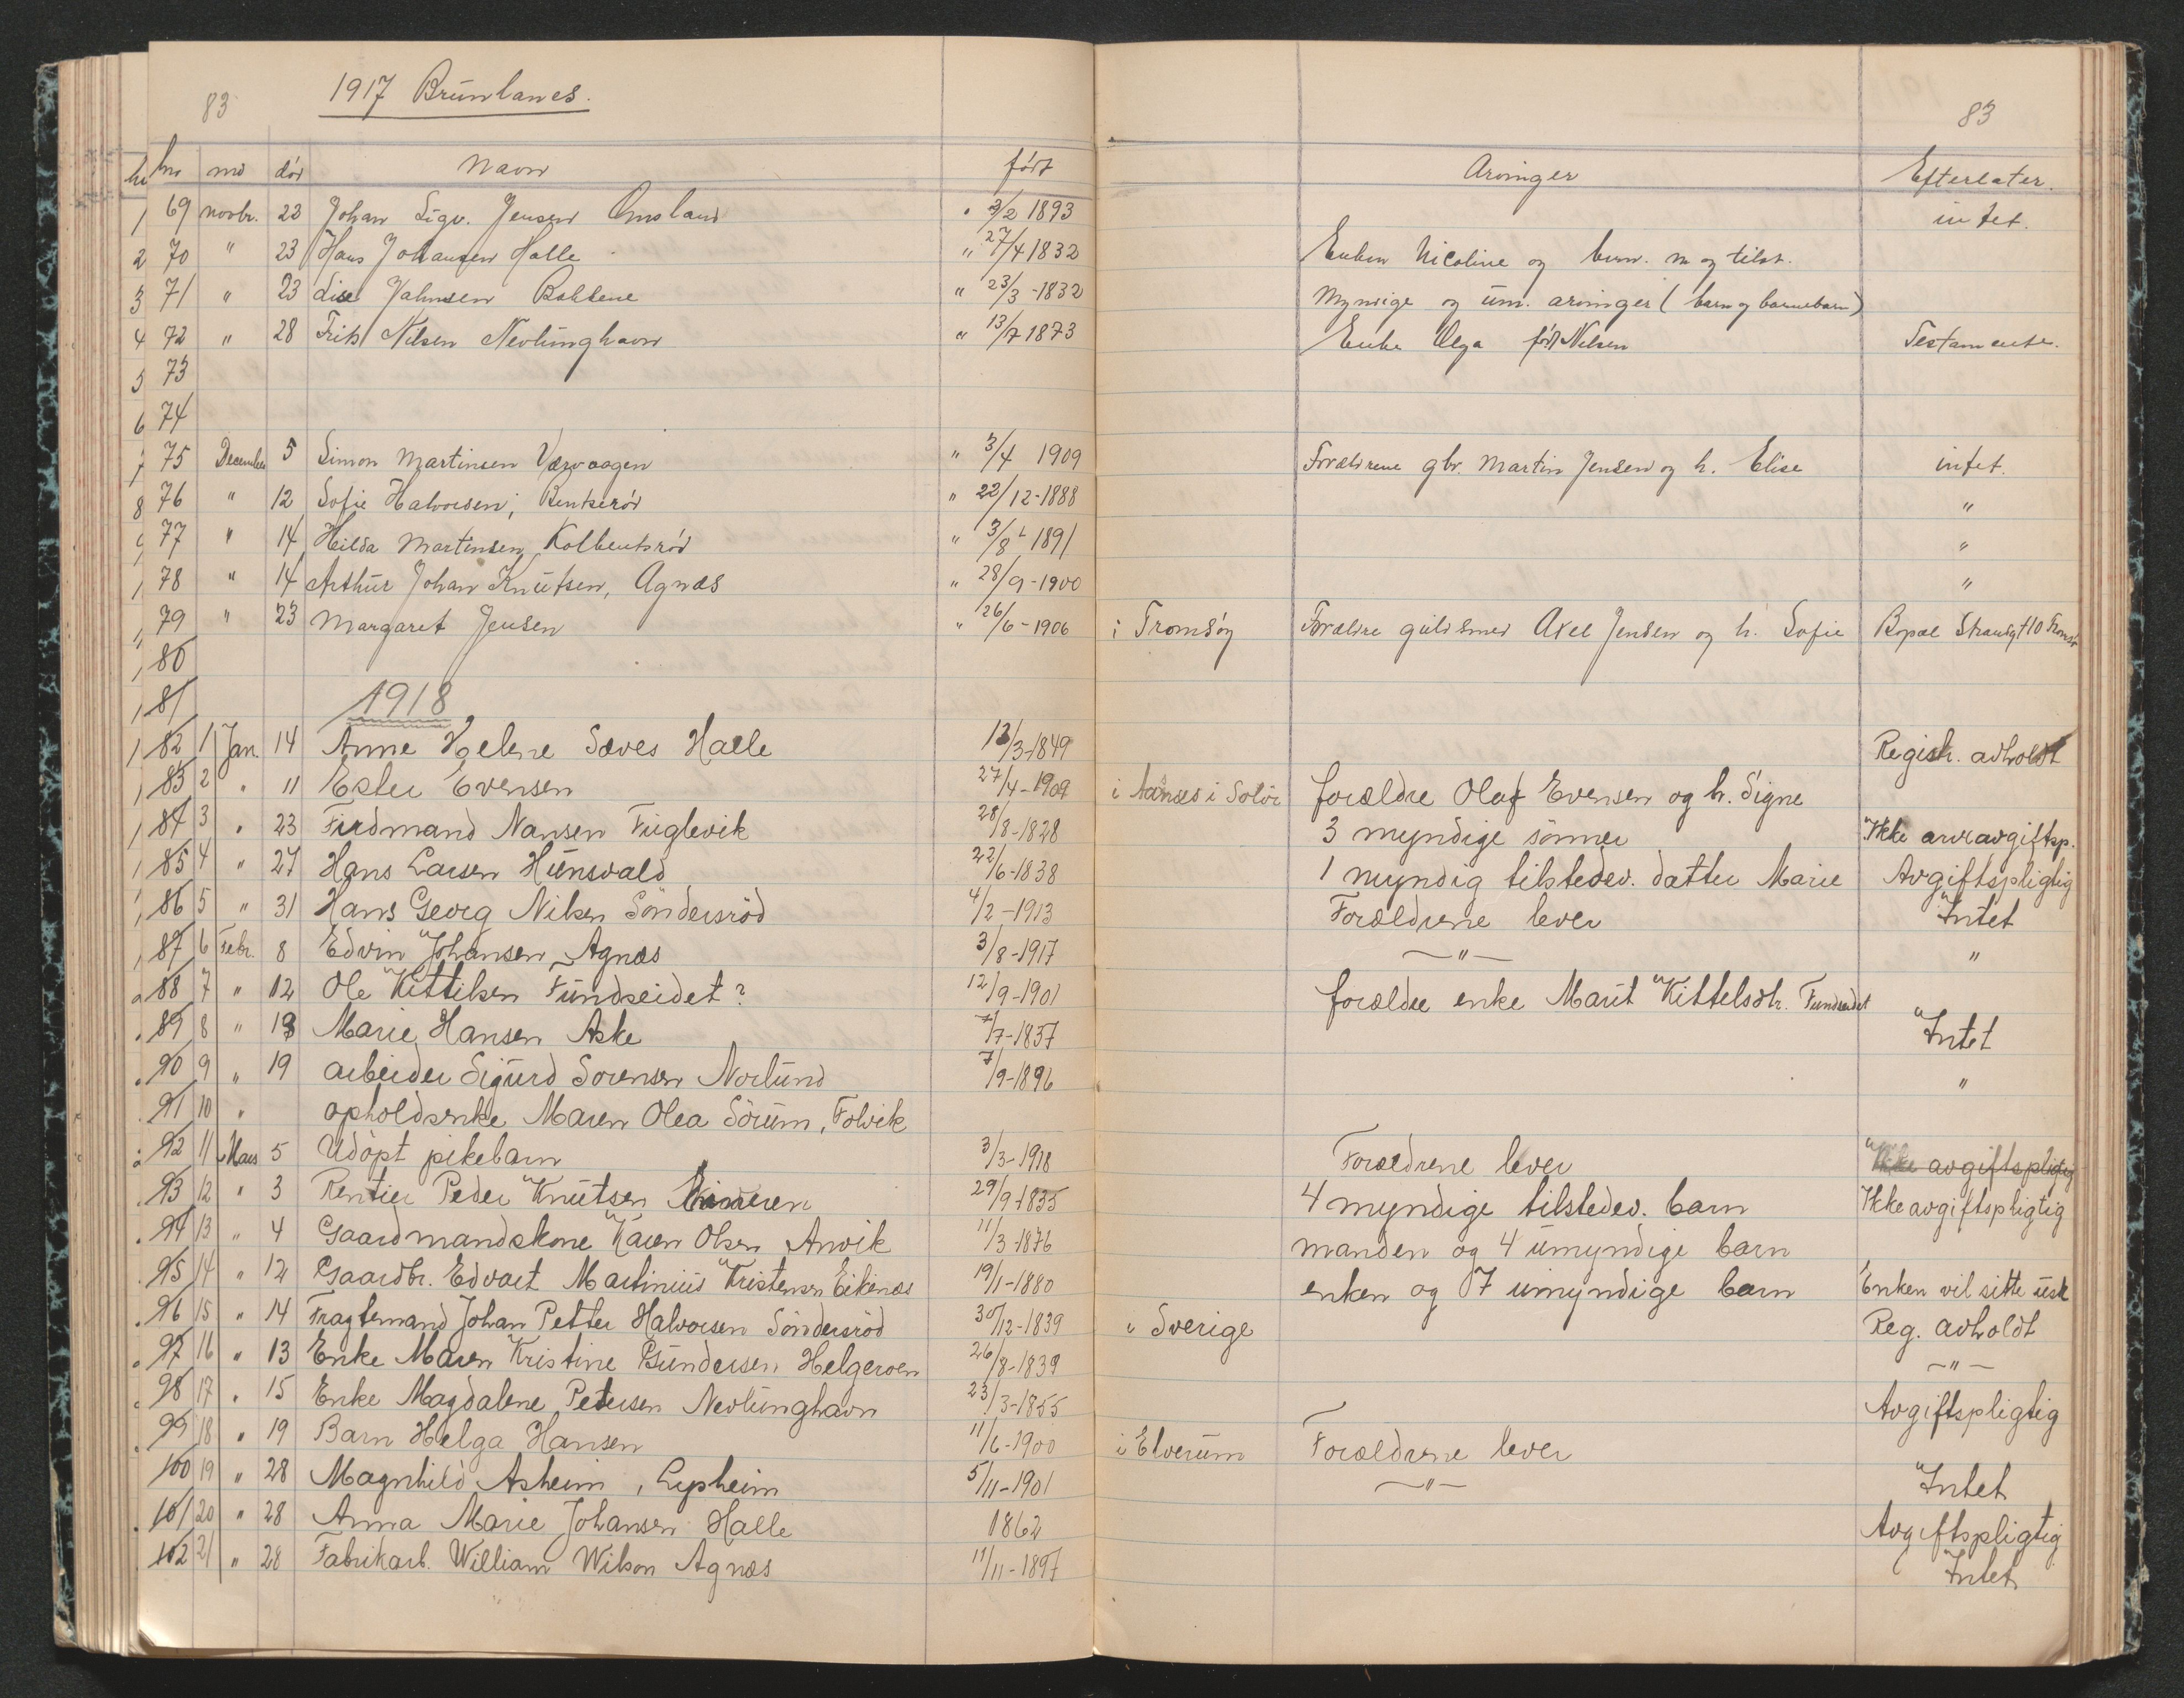 83 1917 Brunlanes. 83
no md død Navn født Arvinger Efterlater.
69 novbr. 22 Johan Sigv. Jensen Omsland " 2/2 1893 intet.
70 " 23 Hans Johansen Halle " 27/4 1832 Enken Nicoline og barn. m og tilst.
71 " 23 Lise Jahnsen " 23/3-1832 Myndige og um. arvinger (barn og barnebarn)
72 " 28 Frits Nilsen Nevlunghavn " 13/7 1873 Enke Olga født Nilsen Testamente.
73
74
75 December 5 Simon Martinsen Varvaagen " 3/4 1909 Forældrene gbr. Martin Jensen og h. Elise intet.
76 " 12 Sofie Halvorsen, Bentserød " 22/12-1888 "
77 " 14 Hilda Martinsen Kolbentsrød " 3/8 1891 "
78 " 14 Arthur Johan Knutsen, Agnæs " 28/9-1900 "
79 " 23 Margaret Jensen " 26/6-1906 i Tromsøy Forældre guldsmed Axel Jensen og h. Sofie Bopæl Strandgt 10 Tromsø
80
81 1918
82 1 Jan. 14 Anne Helene Sæves Halle 13/3-1849 Registr. avholdt
83 2 " 11 Ester Evensen 27/4-1909 i Aasnes i Solør forældre Olaf Evensen og h. Signe
84 3 " 23 Firdmand Nansen Fuglevik 28/8-1828 3 myndige sønner Ikke arveavgiftsp.
85 4 " 27 Hans Larsen Hunsvald 22/6-1838 1 myndig tilstedev. datter Marie Avgiftspligtig
86 5 " 31 Hans Georg Nilsen Søndersrød 4/2-1913 Forældrene lever Intet
87 6 Febr. 8 Edvin Johansen, Agnæs 3/8-1917 — " — "
88 7 " 12 Ole Kittilsen Fundseidet? 12/9-1901 forældre enke Marit Kittelsdtr. Fundseidet
89 8 " 13 Marie Hansen Aske 7/7-1837 Intet
90 9 " 19 arbeider Sigurd Sorensen Norlund 7/9-1896 "
91 10 " opholdsenke Maren Olea Sörum, Folvik
92 11 Mars 5 Udöpt pikebarn 3/3-1918 Forældrene lever Ikke avgiftspligtig
93 12 " 3 Rentier Peder Knutsen 29/9-1835 4 myndige tilstedev. barn Ikke avgiftspligtig
94 13 " 4 Gaardmandskone Karen Olsen Anvik 11/3-1876 manden og 4 umyndige barn
95 14 " 12 Gaardbr. Edvart Martinius Kristensen Eikenæs 19/1-1880 enken og 7 umyndige barn Enken vil sitte usk
96 15 " 14 Fragtemand Johan Petter Halvorsen Söndersröd 30/12-1839 i Sverige Reg. avholdt
97 16 " 13 Enke Maren Kristine Gundersen Helgeroen 26/8-1839 — " —
98 17 " 15 Enke Magdalene Petersen Nevlunghavn 23/3-1855 Avgiftspligtig
99 18 " 19 Barn Helga Hansen 11/6-1900 i Elverum Forældrene lever
100 19 " 28 Magnhild Asheim, Lysheim 5/11-1901 — " — Intet
101 20 " 28 Anna Marie Johansen Halle 1862 Avgiftspligtig
102 21 " 28 Fabrikarb. William Wilson Agnæs 11/11-1897 Intet